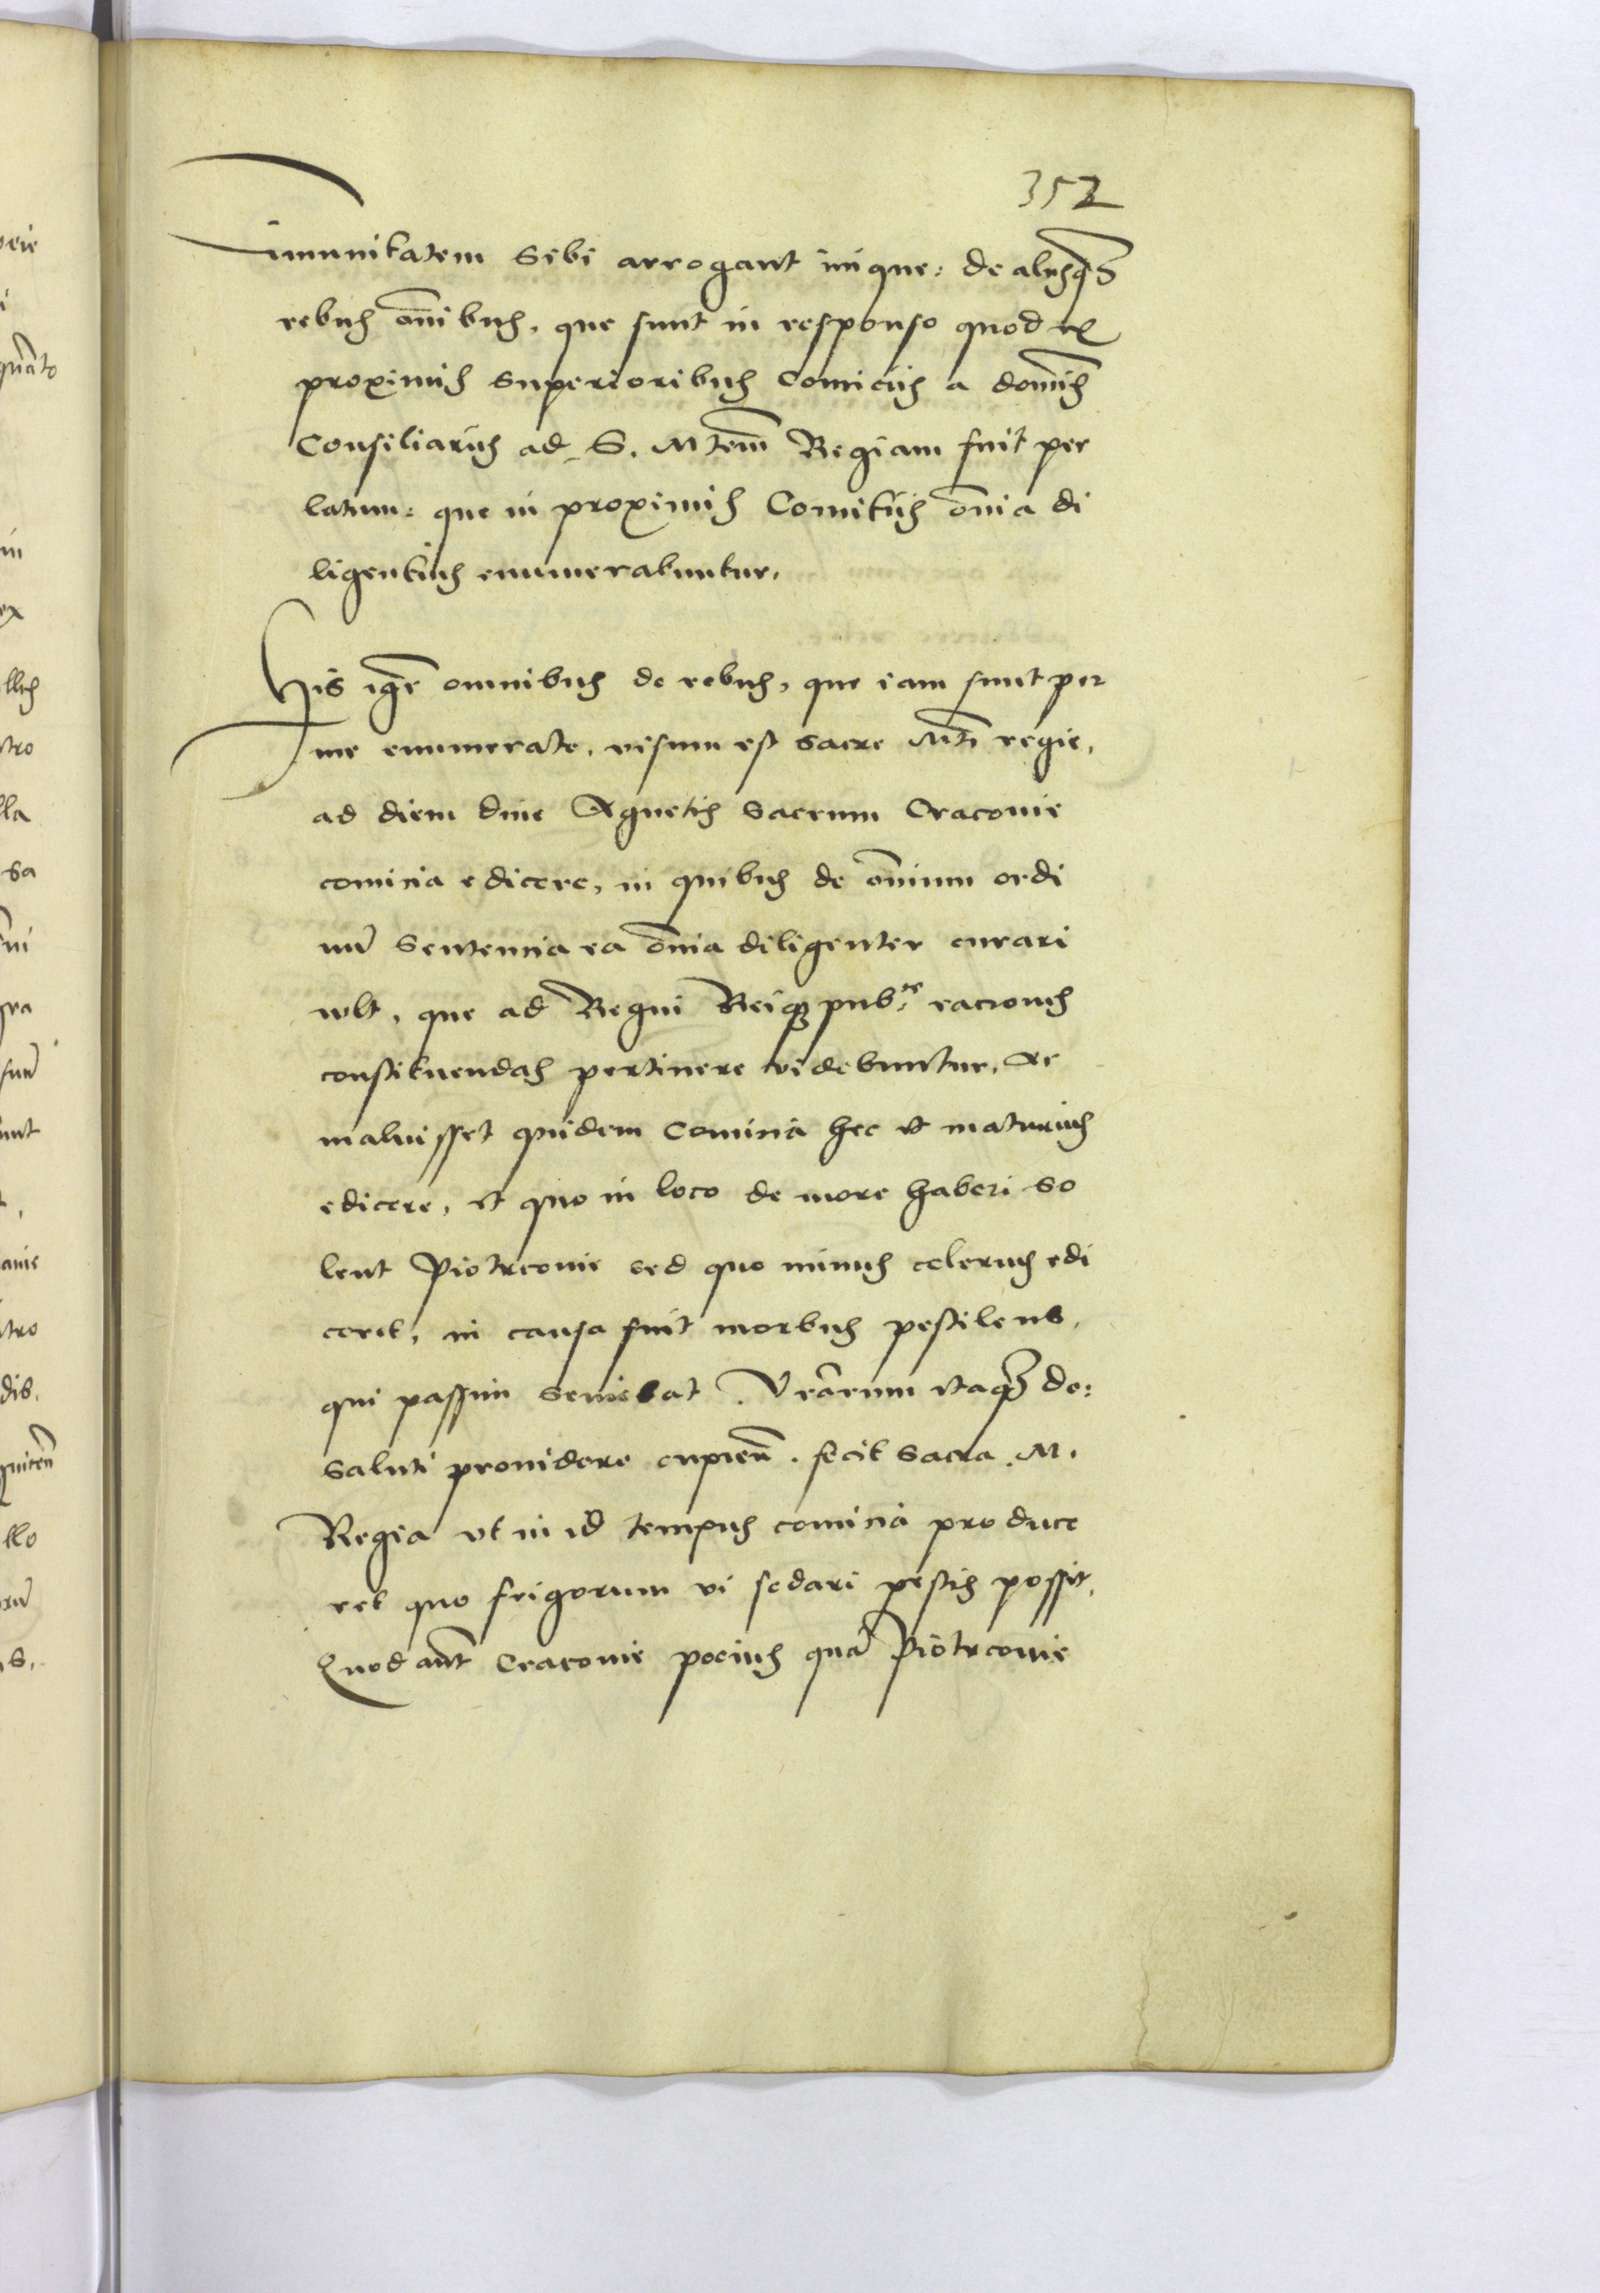 352
imunitatem sibi arrogant inique: de alijsq3
rebus om̄ibus, que sunt in responso quod ex
proximis superioribus Comicijs a dom̄is
Consiliarijs ad S. Mtem̄ Regiam fuit per
latum: que in proximis Comitijs om̄ia di
ligentius enumerabuntur.
His igr̄ omnibus de rebus, que iam sunt per
me enumerate, visum est sacre Mti regie,
ad diem diue Agnetis sacrum Cracouie
comicia edicere, in quibus de om̄ium ordi
nū sentencia ea om̄ia diligenter curari
wlt, que ad Regni Reiq3 pub.ce racionēs
constituendas pertinere videbuntur, Ac
maluisset quidem comicia hec et maturius
edicere, et quo in loco de more haberi so
lent Piotrcouie sed quo minus celerius edi
ceret, in causa fuit morbus pestilens,
qui passim seuiebat. Vrārum itaq3 do:
saluti prouidere cupien̄. fecit sacra M.
Regia vt in id tempus comicia produce
ret quo frigorum vi sedari pestis possit,
Quod aūt Cracouie pocius quā Piotrcouie